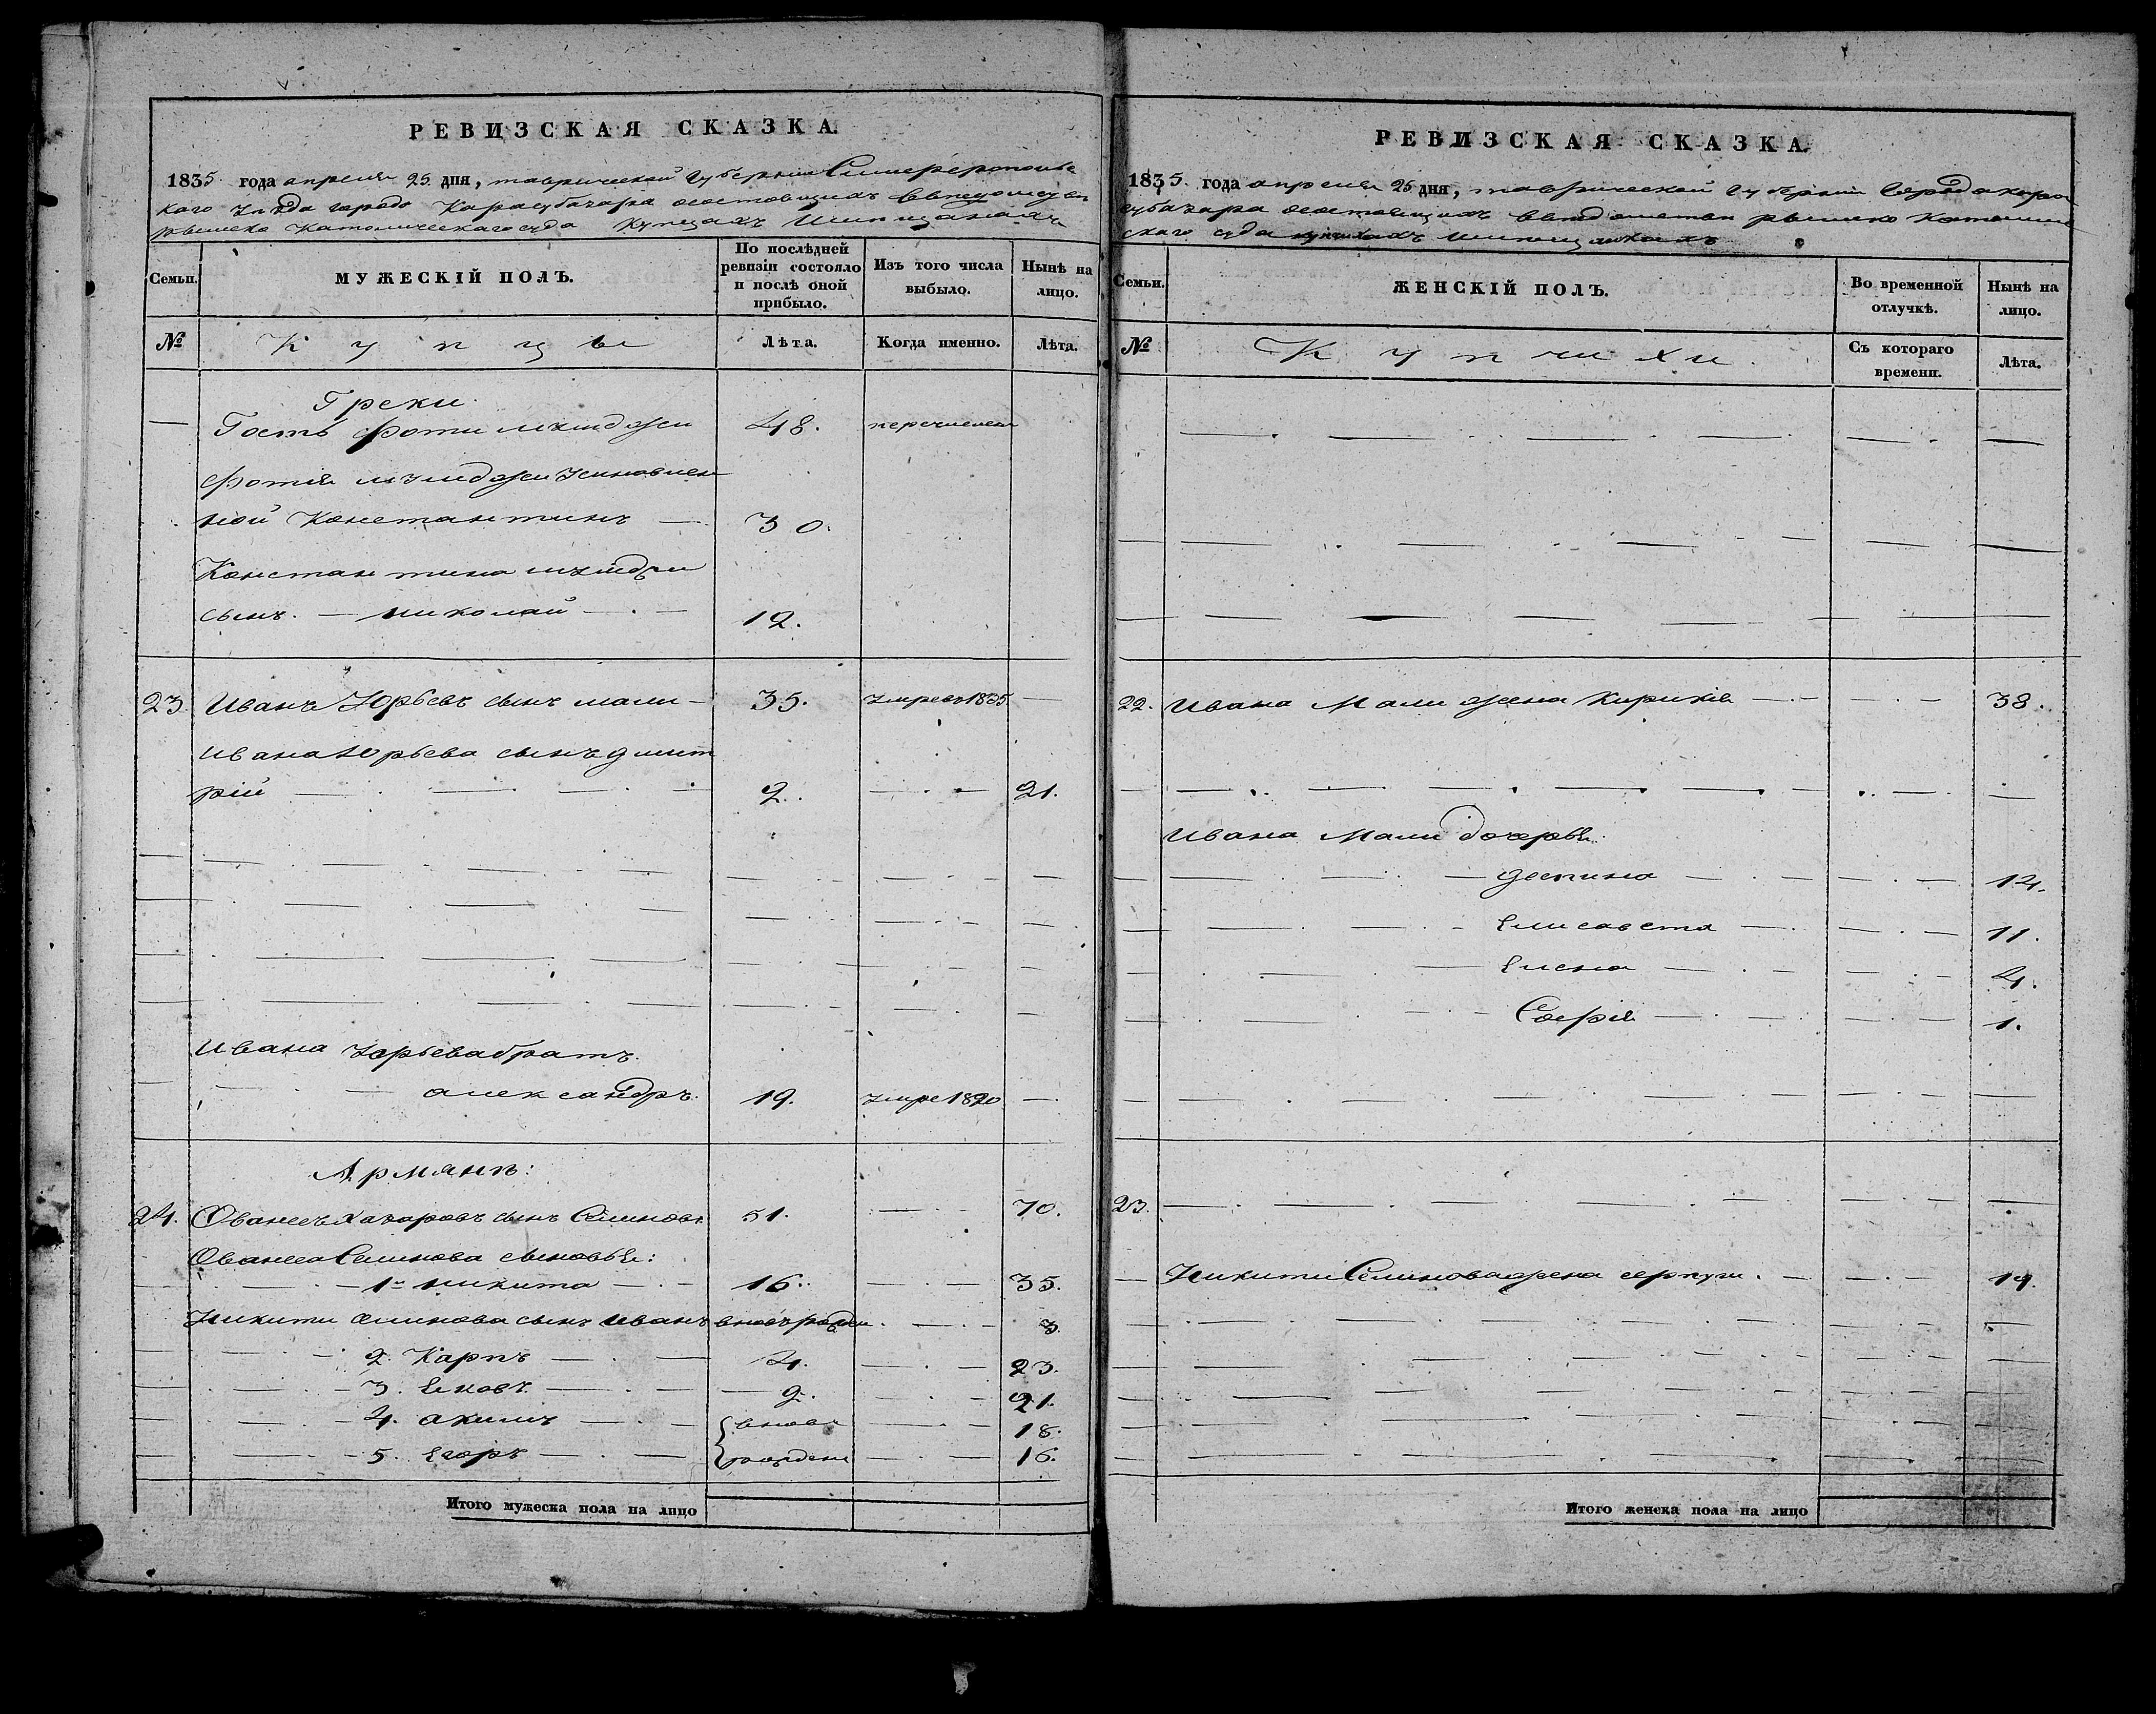 РЕВИЗСКАЯ СКАЗКА.
1835 года апреля 25 дня, таврической губернии Симферополь
каго уѣзда города Карасубазара состоящихъ
римско Католическаго суда Купцахъ
Семьи.
МУЖЕСКІЙ ПОЛЪ.
По послѣдней
ревизіи состояло
и послѣ оной
прибыло.
Изъ того числа
выбыло.
Нынѣ на
лицо.
№
Купцы
Лѣта.
Когда именно.
Лѣта.
Греки
48. перечислен
Фотія
ной Константинъ — 30.
Константина
сынъ. — николай — 12.
23. Иванъ Юрьевъ сынъ мали — 35. умре въ 1835 —
ивана Юрьева сынъ дмит
рій — 2. — 21.
ивана Юрьева братъ
александръ. 19. умре 1820 —
Армянъ:
24. Ованесъ Хазаровъ сынъ Селиновъ 51. — 70.
Ованеса Селинова сыновья:
1й никита — 16. — 35.
Никити Селинова сынъ иванъ вновь рожден — 3.
2. Карпъ — 4. — 23.
3. Яковъ — 2. — 21.
4. акимъ — вновь — 18.
5. Егоръ — рожден — 16.
Итого мужеска пола на лицо
РЕВИЗСКАЯ СКАЗКА.
1835. года апреля 25 дня, таврической губерніи города кара
субазара состоящихъ въ римско католиче
скаго суда
Семьи.
ЖЕНСКІЙ ПОЛЪ.
Во временной
отлучкѣ.
Нынѣ на
лицо.
№
Купчихи
Съ котораго
времени.
Лѣта.
22. Ивана Мали жена Кирикія — 38.
Ивана Мали дочерья
деспина — 14.
Елисавета — 11.
Елена — 4.
Софія — 1.
23.
Никити Селинова жена — 19.
Итого женска пола на лицо